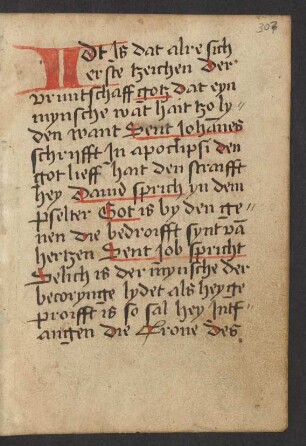 307
Dit is dat alre sich
erste tzeichen der
vruntschaff gotz dat eyn
mynsche wat hait tzo ly-
den want Sent Johānes
schrijfft in apoclipsi den
got lieff hait den straifft
hey Dauid sprich yn dem
Pselter Got is by den ge-
nen die bedroifft synt vā
hertzen Sent Job spricht
Selich is der mynsche der
becorynge lydet als hey ge
proifft is so sal hey intf-
angen die Crone des